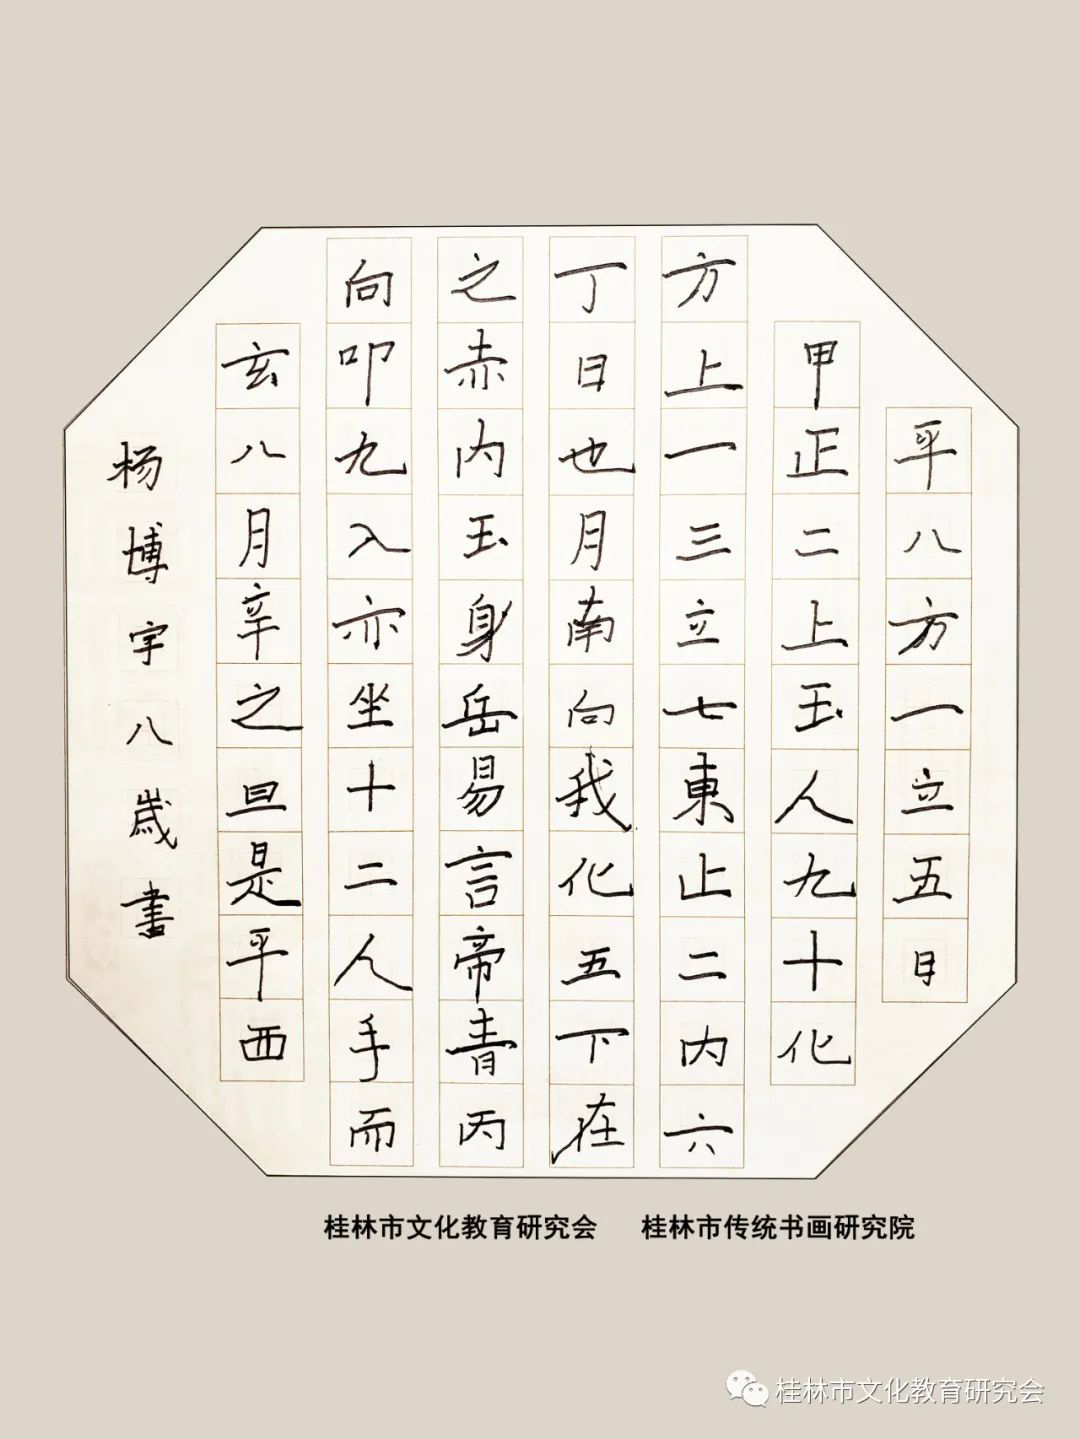 平八方一立五日
甲正二上玉人九十化
方上一三立七東止二内六
丁日也月南向我化五下在
之赤内玉身岳易言帝青丙
向叩九入亦坐十二人手而
玄八月辛之旦是平西
杨博宇八歲書
桂林市文化教育研究会 桂林市传统书画研究院
桂林市文化教育研究会